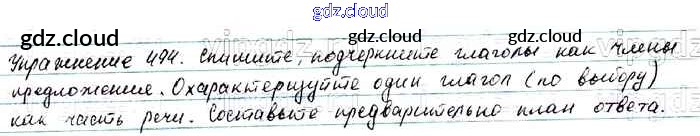 gdz.cloud
gdz.cloud gdz.cloud
Упражнение 494. Спишите, подчеркните глаголы как члены
предложение. Охарактеризуйте один глагол (по выбору)
как часть речи. Составьте предварительно план ответа.
gdz.cloud gdz.cloud